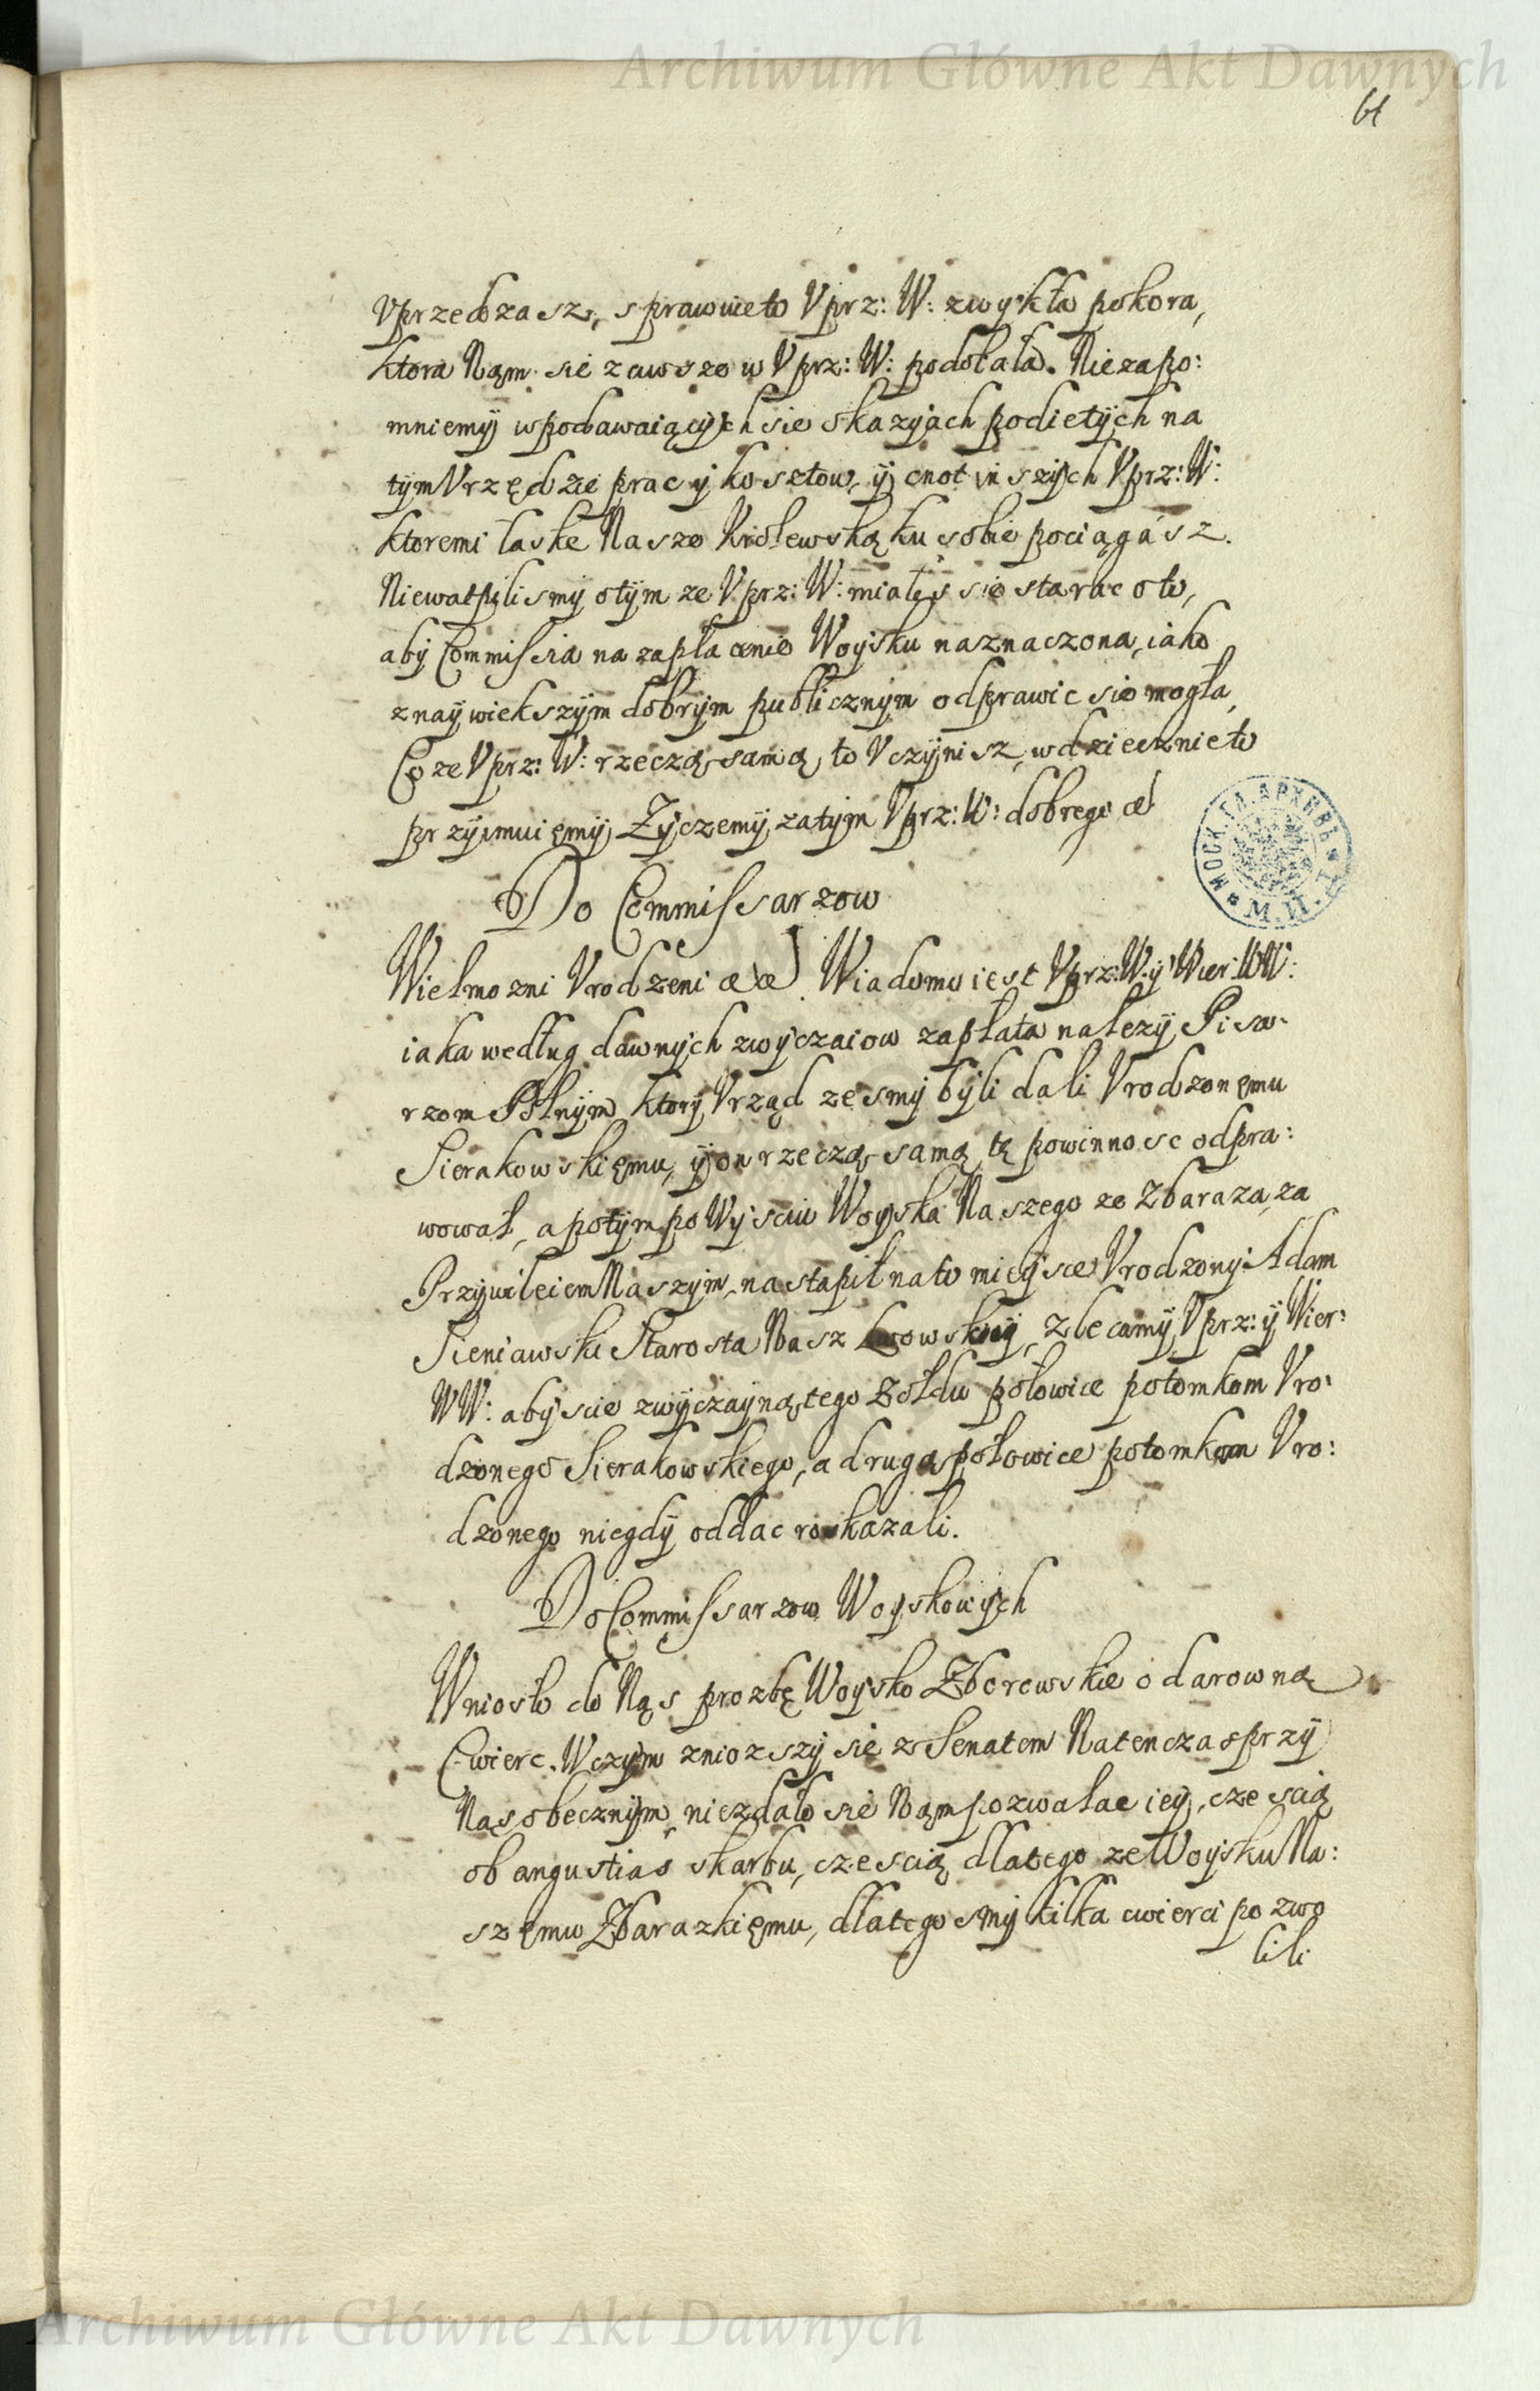 Archiwum Główne Akt Dawnych
61
Vprzedzasz, sprawuieto Vprz: W: zwykła pokora,
ktora Nąm sie zawsze w Vprz: W: podobała. Niezapo:
mniemy wpodawaiących sie okazyach podietych na
tym Vrzędzie prac y kosztow, y cnot inszych Vprz: W:
ktoremi łaske Nasze Krolewską ku sobie pociągasz.
Niewatpilismy otym ze Vprz: W: miałes sie starac oto,
aby Commissia na zapłacenie Woysku naznaczona, iako
znaywiekszym dobrym publicznym odprawic sie mogła,
Co ze Vprz: W: rzeczą samą to Vczynisz, wdziecznieto
przyimuięmy, Zyczemy zatym Vprz: W: dobrego &
Do Commissarzow
Wielmozni Vrodzeni & & Wiadomo iest Vprz: W: y Wier: WW:
iaka według dawnych zwyczaiow zapłata nalezy Pisa-
rzom Polnym ktory Vrząd zesmy byli dali Vrodzonęmu
Sierakowskięmu, y on rzeczą samą tę powinnosc odpra:
wował, a potym po Wysciu Woyska Naszego ze Zbaraza, za
Przywileiem Naszym, nastąpił na to mieysce Vrodzony Adam
Sieniawski Starosta Nasz Lwowsky, zlecamy Vprz: y Wier:
WW: abyscie zwyczayną tego Zołdu połowice potomkom Vro:
dzonego Sierakowskiego, a drugą połowice potomkom Vro:
dzonego niegdy oddac roskazali.
Do Commissarzow Woyskowych
Wniosło do Nąs prozbę Woysko Zborowskie o darowną
Cwierc. Wczym zniozszy sie z Senatem Natenczas przy
Nąs obecznym, niezdało sie Nąm pozwalac iey, czescią
ob angustias skarbu, czescią dlatego ze Woysku Na:
szęmu Zbarazkięmu, dlatego smy kilka cwierci pozwo
lili
МОСК. ГЛ. АРХИВЪ М. И. Д.
Archiwum Główne Akt Dawnych